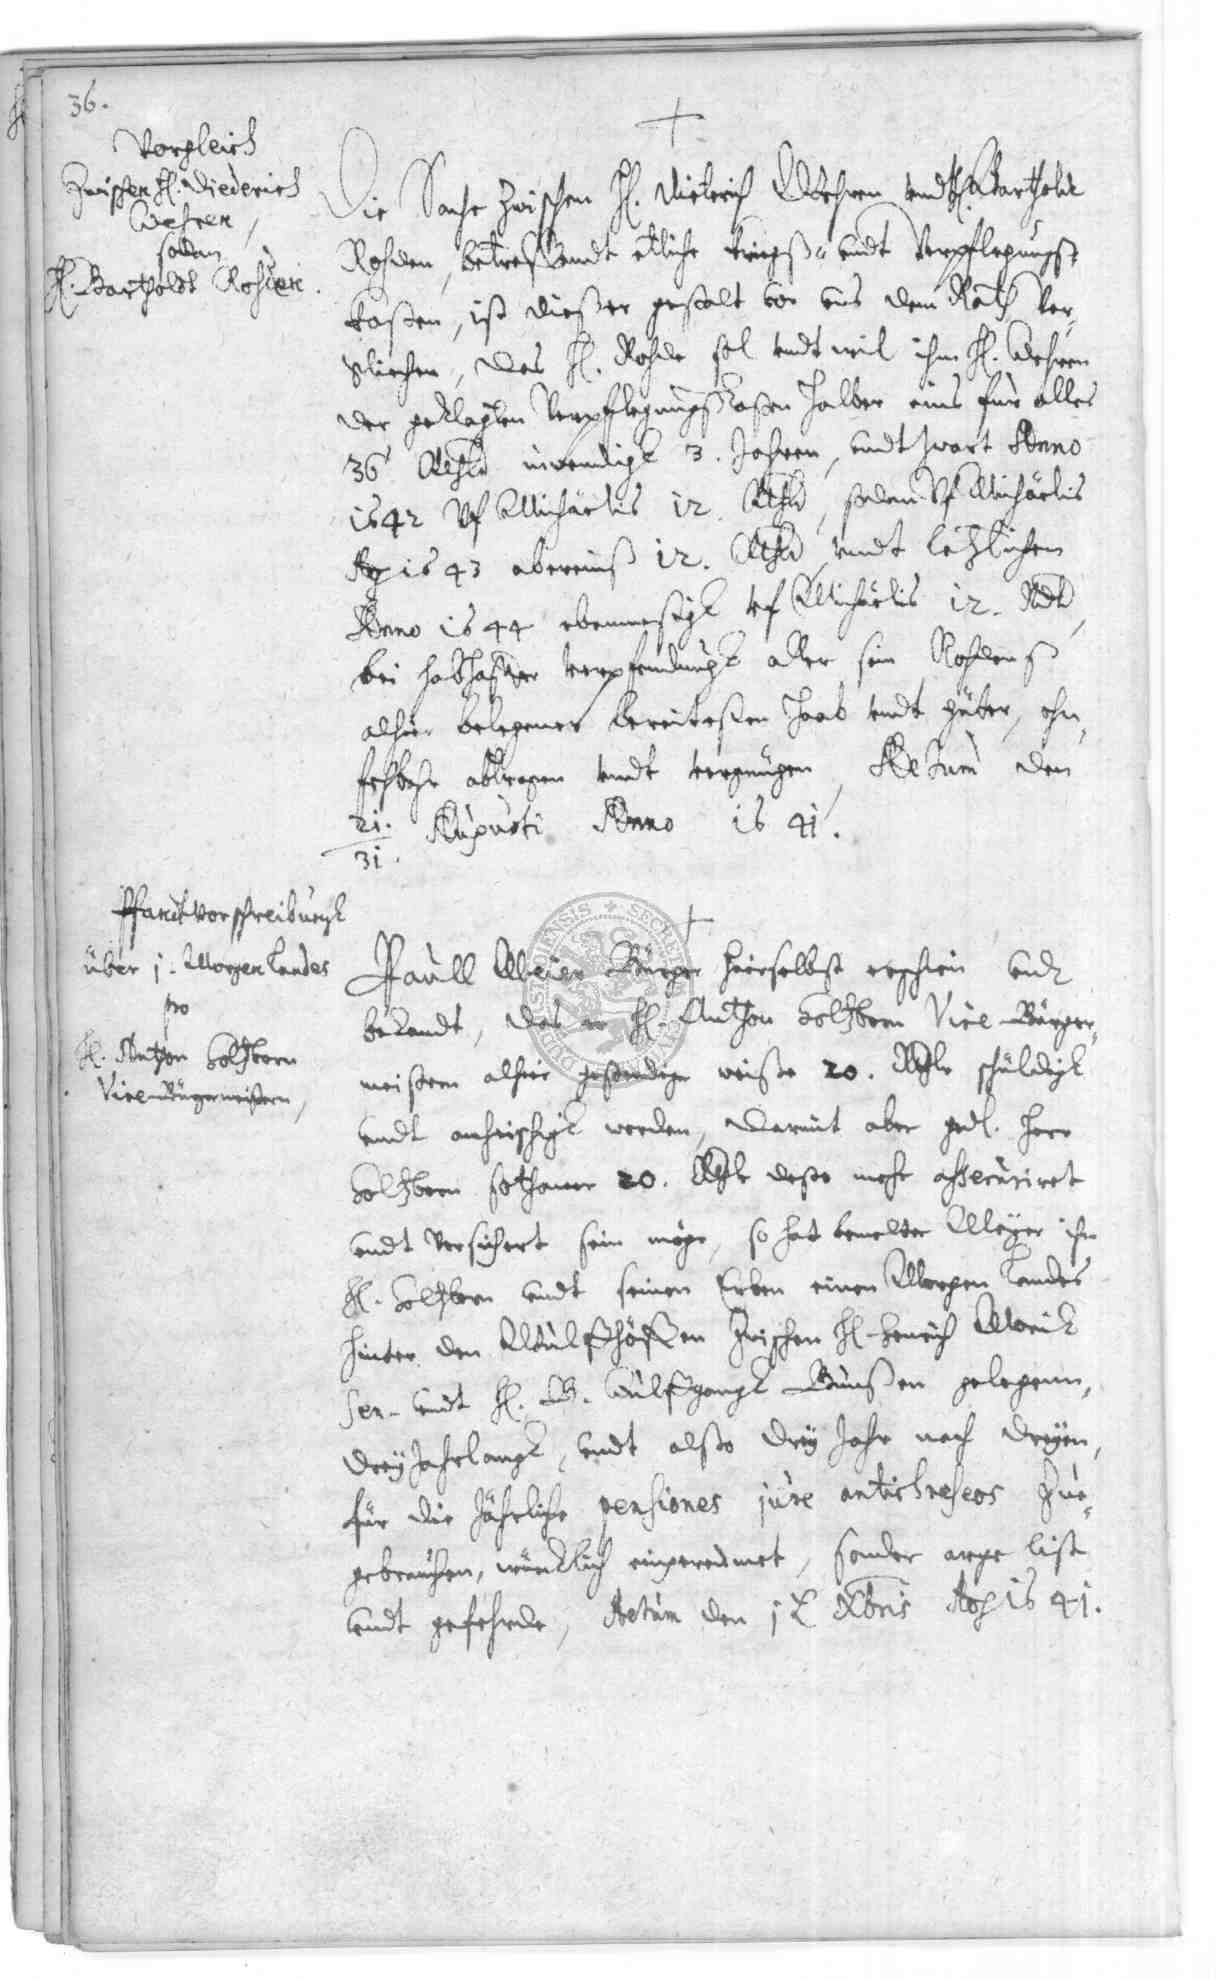 36.
Vorgleich
Zwischen H. Diederich
Wehren,
sodan
H. Bartholdt Rohden.
Die Sache zwischen H. Dieterich Wehren undt H. Bartholdt
Rohden, betreffendt etliche kriegß- undt Verpflegungß-
kosten, ist dießer gestalt vor uns dem Rath ver-
glichen, das H. Rohde sol undt wil ihm H. Wehren
der geklagten Verpflegungßkosten halber eins für alles
36 Rthlr inwendigk 3. Jahren, undt zwart Anno
1642 Vf Michäelis 12. Rthlr, sodan Vf Michäelis
Ao 1643 abereinß 12. Rthlr, undt letzlichen
Anno 1644 ebenmeßigk vf Michäelis 12. Rthlr,
bei habhafter verpfendungk aller sein Rohdenß
alhier belegener bereitesten Haab undt güter, ohn
fehlbahr abtragen undt vergnügen, Actum den
21.
31. Augusti Anno 1641.
Pfandtvorschreibungk
über 1. Morgen Landes
pro
H. Anthon Holtzborn
Vice-Bürgermeistern,
Paull Meier Bürger hierselbst erschien undt
bekandt, das er H. Anthon Holtzborn Vice-Bürger-
meistern alhier gestendiger weiße 20. Rthlr schüldigk
undt anheischigk worden, Darmit aber gedl. Herr
Holtzborn sothaner 20. Rthlr desto mehr assecuriret
undt versichert sein möge, so hat bemelter Meÿer ihm
H. Holtzborn undt seinen Erben einen Morgen Landes
hinter den Wülffhöffen zwischen H. Henrich
sen. undt H. B. Wulffgangk Bunßen gelegenn,
dreÿ Jahrlangk, undt alßo dreÿ Jahr nach dreÿen,
für die Jährliche pensiones jure antichreseos zue-
gebrauchen, würcklich eingereumet, sonder arge list
undt gefehrde, Actum den Xbris Ao 1641.